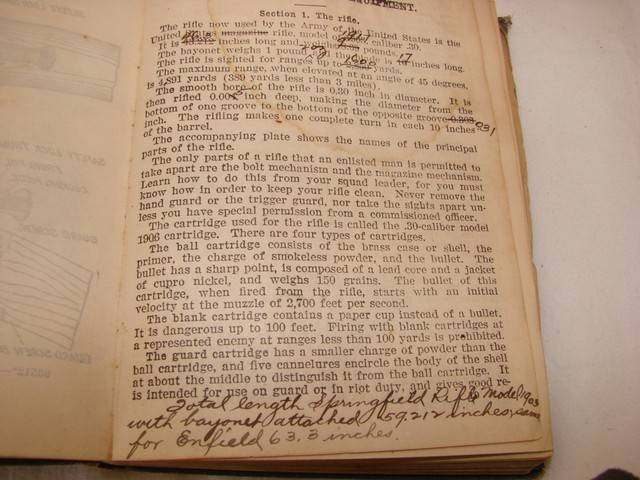 EQUIPMENT.
Section 1. The rifle.
The rifle now used by the Army of the United States is the
United States magazine rifle, model of caliber .30.
It is 43.212 inches long and
The bayonet weighs 1 pound is 17 inches long.
The rifle is sighted for ranges up to yards.
The maximum range, when elevated at an angle of 45 degrees,
is 4,891 yards (389 yards less than 3 miles).
The smooth bore of the rifle is 0.30 inch in diameter. It is
then rifled 0.004 inch deep, making the diameter from the
bottom of one groove to the bottom of the opposite groove 0.308
inch. The rifling makes one complete turn in each 10 inches
of the barrel.
The accompanying plate shows the names of the principal
parts of the rifle.
The only parts of a rifle that an enlisted man is permitted to
take apart are the bolt mechanism and the magazine mechanism.
Learn how to do this from your squad leader, for you must
know how in order to keep your rifle clean. Never remove the
hand guard or the trigger guard, nor take the sights apart un-
less you have special permission from a commissioned officer.
The cartridge used for the rifle is called the .30-caliber model
1906 cartridge. There are four types of cartridges.
The ball cartridge consists of the brass case or shell, the
primer, the charge of smokeless powder, and the bullet. The
bullet has a sharp point, is composed of a lead core and a jacket
of cupro nickel, and weighs 150 grains. The bullet of this
cartridge, when fired from the rifle, starts with an initial
velocity at the muzzle of 2,700 feet per second.
The blank cartridge contains a paper cup instead of a bullet.
It is dangerous up to 100 feet. Firing with blank cartridges at
a represented enemy at ranges less than 100 yards is prohibited.
The guard cartridge has a smaller charge of powder than the
ball cartridge, and five cannelures encircle the body of the shell
at about the middle to distinguish it from the ball cartridge. It
is intended for use on guard or in riot duty, and gives good re-
Total length Springfield Rifle Model 1903
with bayonet attached 59.212 inches, same
for Enfield 63.3 inches.